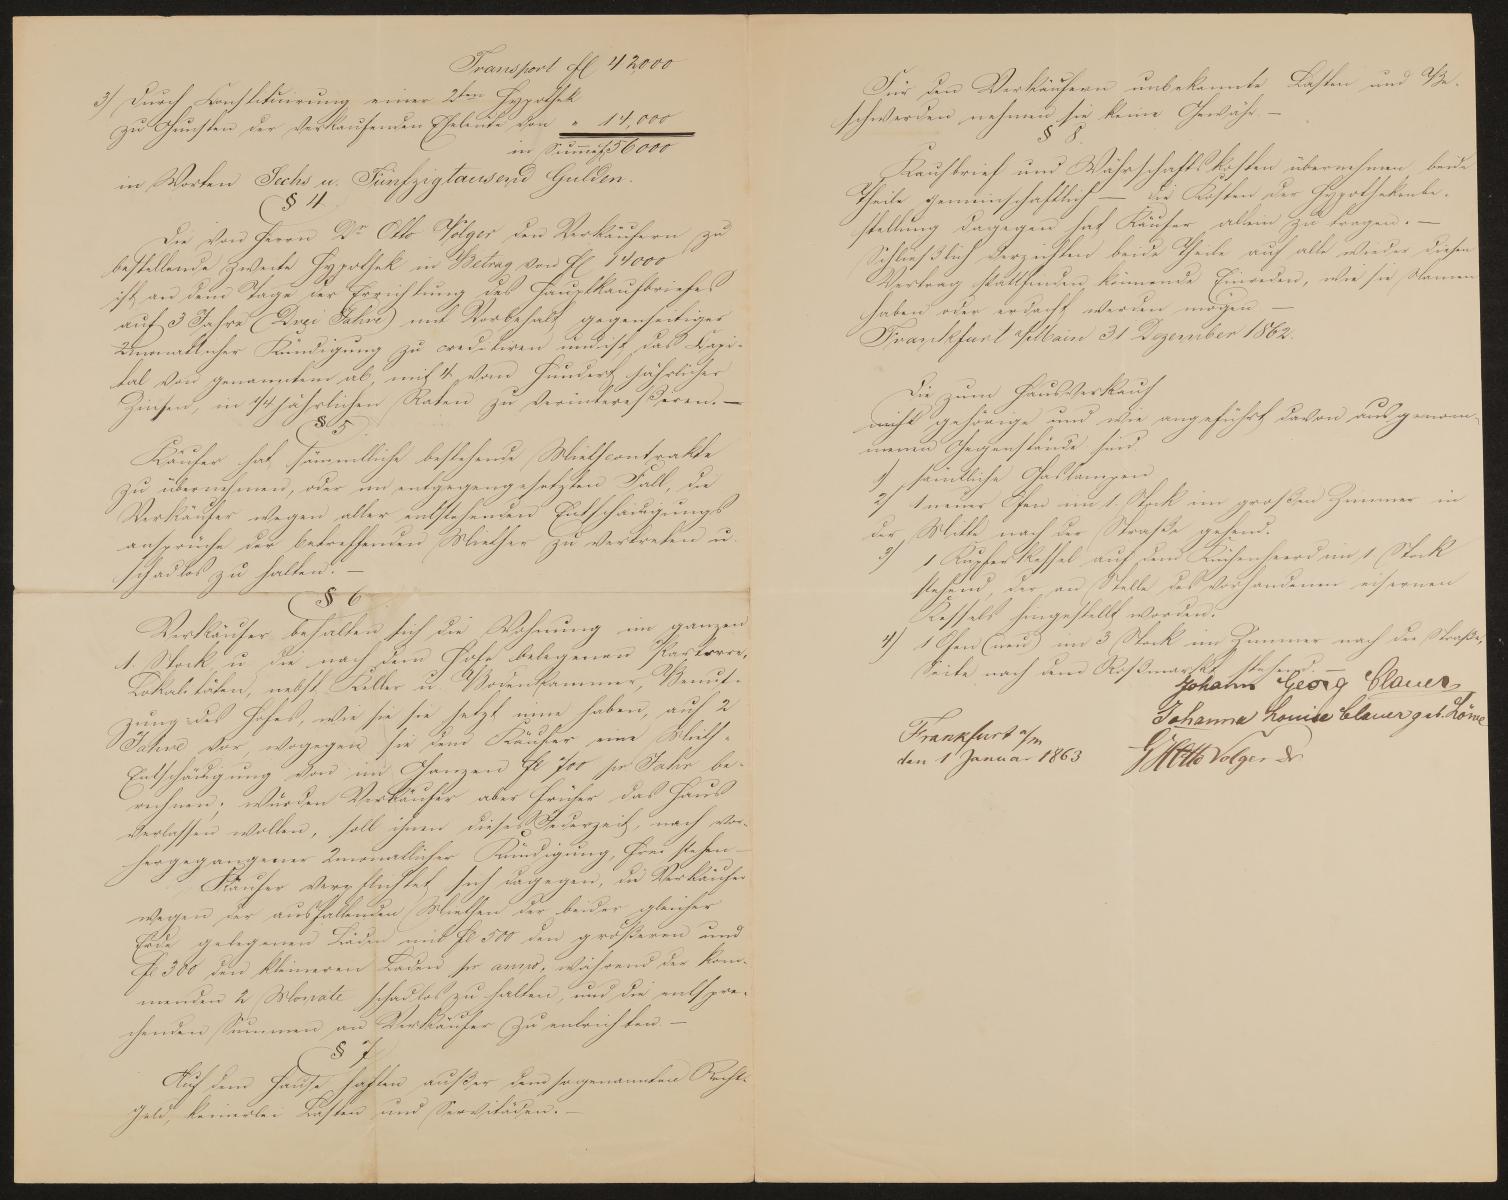 Transport fl 42000
3) Durch Constituirung einer 2ten Hypothek
zu Gunsten der verkaufenden Eheleute von " 14,000
in Summa fl 56000
in Worten Sechs u. Fünfzigtausend Gulden.
§ 4
Die von Herrn Dr Otto Volger den Verkäufern zu
bestellende zweite Hypothek im Betrag von fl 14000
ist an dem Tage der Errichtung des Hauptkaufbriefes
auf 3 Jahre (Drei Jahre) mit Vorbehalt gegenseitiger
2monatlicher Kündigung zu creditiren und ist das Capi-
tal von genanntem ab, mit 4 vom Hundert jährlicher
Zinsen, in 1/4 jährlichen Raten zu verinteressiren. —
§ 5
Käufer hat sämmtliche bestehende Miethcontrakte
zu übernehmen, oder im entgegengesetzten Fall, die
Verkäufer wegen aller entstehenden Entschädigungs
ansprüche der betreffenden Miether zu vertreten u.
schadlos zu halten. —
§ 6
Verkäufer behalten sich die Wohnung im ganzen
1. Stock u die nach dem Hofe belegenen Parterre,
Lokalitäten, nebst Keller u. Bodenkammer, Benut-
zung des Hofes, wie sie sie jetzt inne haben, auf 2
Jahre vor, wogegen sie dem Käufer eine Mieth-
Entschädigung von im Ganzen fl 700 pr Jahr be-
rechnen; würden Verkäufer aber früher das Haus
verlassen wollen, soll ihnen dieses Jederzeit, nach vor-
hergegangener 2monatlicher Kündigung, frei stehen —
Käufer verpflichtet sich dagegen, die Verkäufer
wegen der ausfallenden Miethen der beider gleicher
Erde gelegenen Läden mit fl 500 den größeren und
fl 300 den kleineren Laden pr anno, während der kom-
menden 2 Monate schadlos zu halten, und die entspre-
chenden Summen an Verkäufer zu entrichten —
§ 7
Auf dem Hause haften außer dem sogenannten Recht-
geld, keinerlei Lasten und Servitäden. —
Für den Verkäufern unbekannte Lasten und Be-
schwerden nehmen sie keine Gewähr. —
§ 8
Kaufbrief und Währschaftskosten übernehmen beide
Theile gemeinschaftlich — die Kosten der Hypothekenbe-
stellung dagegen hat Käufer allein zu tragen. —
Schließlich verzichten beide Theile auf alle wieder diesen
Vertrag stattfinden könnende Einreden, wie sie Namen
haben oder erdacht werden mögen —
Frankfurt a/Main 31 Dezember 1862.
Die zum Hausverkauf
nicht gehörige und wie angeführt davon ausgenom-
menen Gegenstände sind
1) sämtliche Gaslampen
2) 1 neuer Ofen im 1. Stock im großen Zimmer in
der Mitte nach der Straße gehend.
3) 1 Kupferkessel auf dem Küchenheerd im 1 Stock
stehend, der an Stelle des vorhandenen eisernen
Kessels hingestellt worden.
4) 1 Ofen (neu) im 3 Stock im Zimmer nach der Straße,
Seite nach dem Roßmarkt stehend. —
Johann Georg Clauer
Johanna Louise Clauer geb. Löwe
Frankfurt a/m
den 1 Januar 1863
Otto Volger Dr